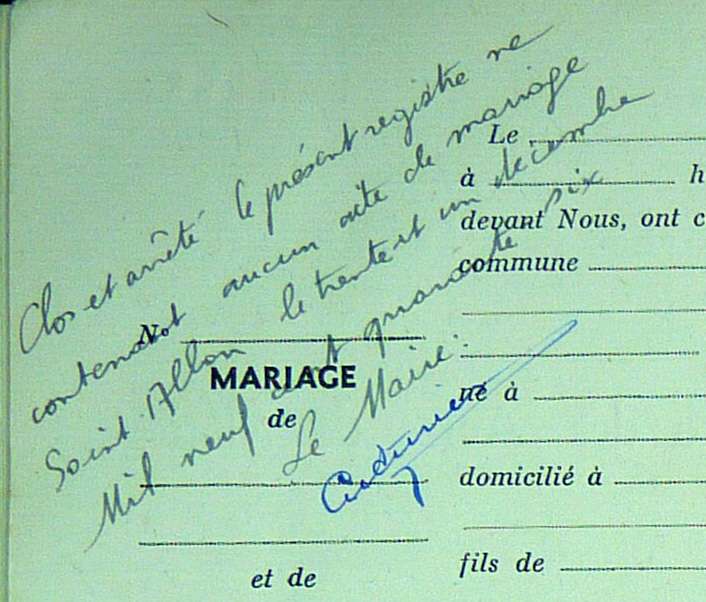 Clos et arrêté le présent registre ne
contenant aucun acte de mariage
Saint Allon le trente et un décembre
Mil neuf cent quarante six
Le Maire :
No
MARIAGE
de
et de
Le
à h
devant Nous, ont c
commune
né à
domicilié à
fils de